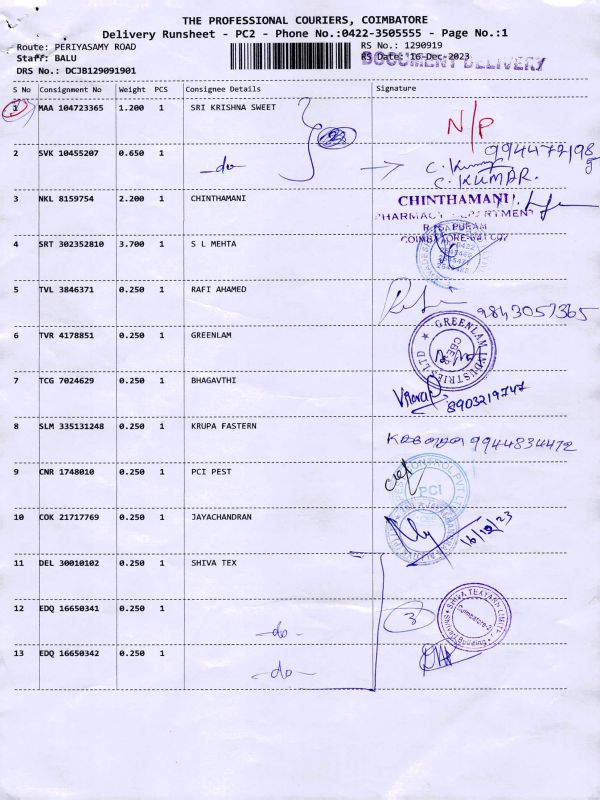 THE PROFESSIONAL COURIERS, COIMBATORE
Delivery Runsheet - PC2 - Phone No.:0422-3505555 - Page No.:1
Route: PERIYASAMY ROAD
RS No.: 1290919
Staff: BALU
RS Date: 16-Dec-2023
DOCUMENT DELIVERY
DRS No.: DCJB129091901
S No Consignment No Weight PCS Consignee Details Signature
1 MAA 104723365 1.200 1 SRI KRISHNA SWEET
2
N/P
2 SVK 10455207 0.650 1 -do-
C. KUMAR.
3 NKL 8159754 2.200 1 CHINTHAMANI
CHINTHAMANI
PHARMACY DEPARTMENT
R.S. PURAM
COIMBATORE-641 002
4 SRT 302352810 3.700 1 S L MEHTA
5 TVL 3846371 0.250 1 RAFI AHAMED
9843057365
6 TVR 4178851 0.250 1 GREENLAM
GREENLAM INDUSTRIES LTD
CBE
7 TCG 7024629 0.250 1 BHAGAVTHI
8903219747
8 SLM 335131248 0.250 1 KRUPA FASTERN
9944834472
9 CNR 1748010 0.250 1 PCI PEST
PCI
10 COK 21717769 0.250 1 JAYACHANDRAN
16/12/23
11 DEL 30010102 0.250 1 SHIVA TEX
12 EDQ 16650341 0.250 1
-do-
3
SHIVA TEXYARN LIMITED
13 EDQ 16650342 0.250 1
-do-